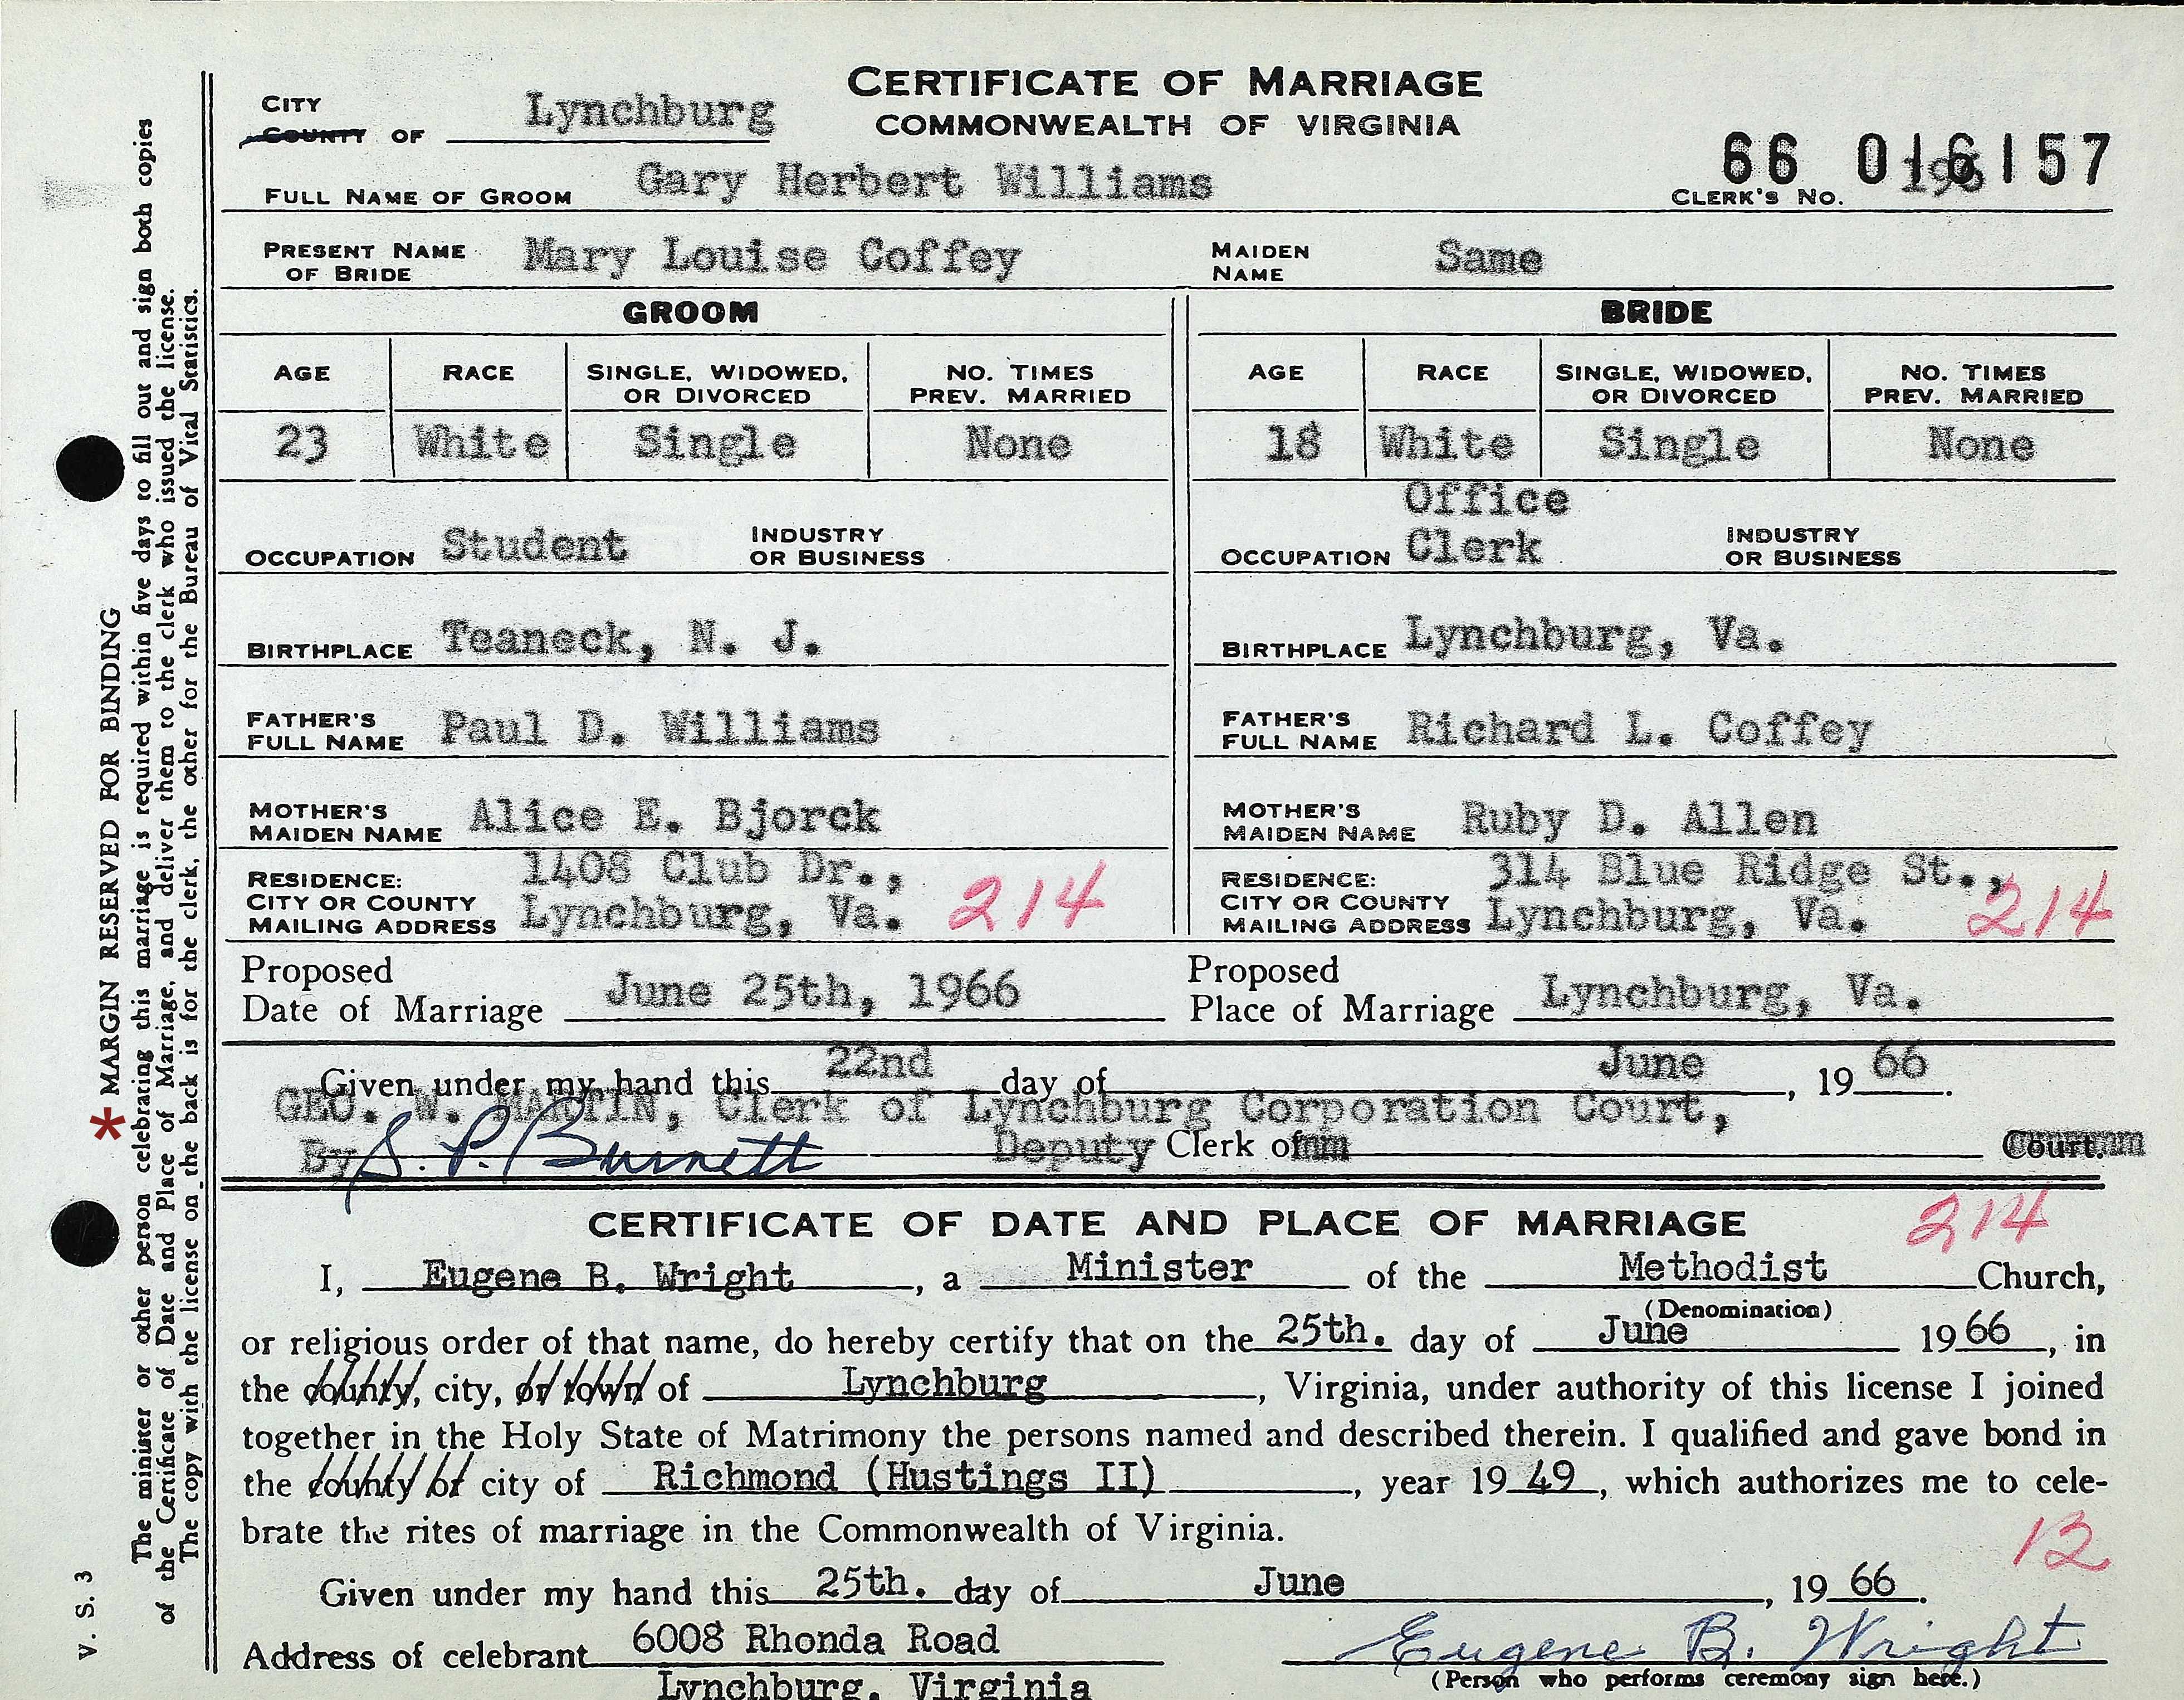 CERTIFICATE OF MARRIAGE
COMMONWEALTH OF VIRGINIA
CITY
COUNTY OF Lynchburg
66 016157
CLERK'S NO. 196
FULL NAME OF GROOM Gary Herbert Williams
PRESENT NAME OF BRIDE Mary Louise Coffey MAIDEN NAME Same
GROOM BRIDE
AGE RACE SINGLE, WIDOWED, OR DIVORCED NO. TIMES PREV. MARRIED AGE RACE SINGLE, WIDOWED, OR DIVORCED NO. TIMES PREV. MARRIED
23 White Single None 18 White Single None
OCCUPATION Student INDUSTRY OR BUSINESS OCCUPATION Office Clerk INDUSTRY OR BUSINESS
BIRTHPLACE Teaneck, N. J. BIRTHPLACE Lynchburg, Va.
FATHER'S FULL NAME Paul D. Williams FATHER'S FULL NAME Richard L. Coffey
MOTHER'S MAIDEN NAME Alice E. Bjorck MOTHER'S MAIDEN NAME Ruby D. Allen
RESIDENCE: CITY OR COUNTY MAILING ADDRESS 1408 Club Dr., Lynchburg, Va. 214 RESIDENCE: CITY OR COUNTY MAILING ADDRESS 314 Blue Ridge St., Lynchburg, Va. 214
Proposed Date of Marriage June 25th, 1966 Proposed Place of Marriage Lynchburg, Va.
Given under my hand this 22nd day of June, 1966.
GEO. W. MARTIN, Clerk of Lynchburg Corporation Court,
By S. P. Burnett Deputy Clerk of Court.
CERTIFICATE OF DATE AND PLACE OF MARRIAGE 214
I, Eugene B. Wright, a Minister of the Methodist Church,
(Denomination)
or religious order of that name, do hereby certify that on the 25th. day of June 1966, in
the county, city, or town of Lynchburg, Virginia, under authority of this license I joined
together in the Holy State of Matrimony the persons named and described therein. I qualified and gave bond in
the county or city of Richmond (Hustings II), year 1949, which authorizes me to cele-
brate the rites of marriage in the Commonwealth of Virginia. 12
Given under my hand this 25th. day of June, 1966.
Address of celebrant 6008 Rhonda Road Eugene B. Wright
Lynchburg, Virginia (Person who performs ceremony sign here.)
* MARGIN RESERVED FOR BINDING
The minister or other person celebrating this marriage is required within five days to fill out and sign both copies
of the Certificate of Date and Place of Marriage, and deliver them to the clerk who issued the license.
The copy with the license on the back is for the clerk, the other for the Bureau of Vital Statistics.
V. S. 3